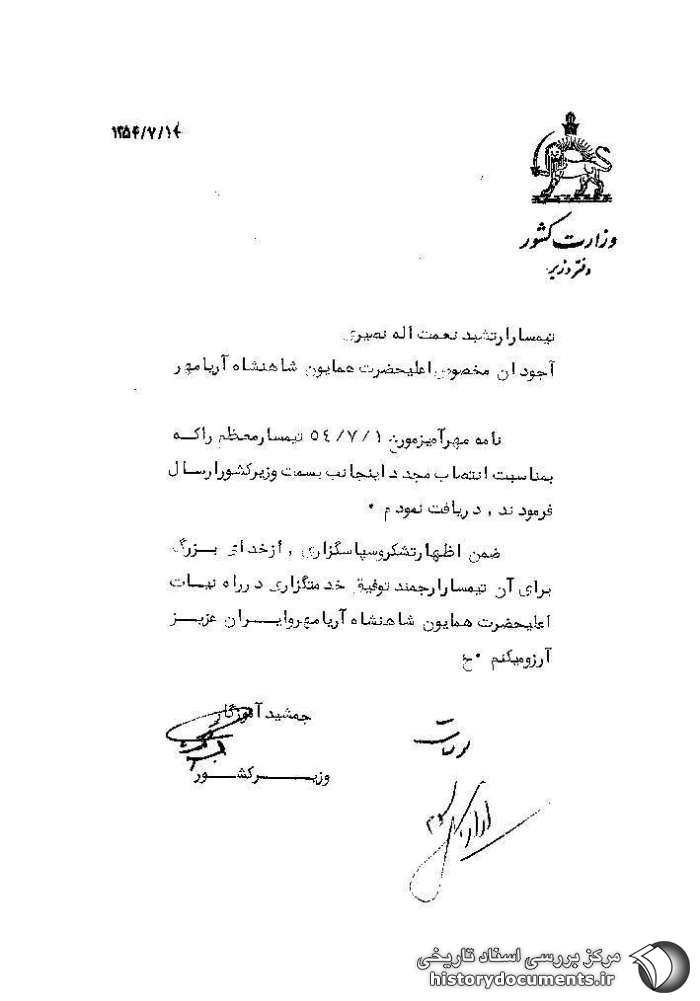 وزارت کشور
دفتر وزیر
تیمسار ارتشبد نعمت اله نصیری
آجودان مخصوص اعلیحضرت همایون شاهنشاه آریامهر
نامه مهرآمیزمورخ ۵۴/۷/۱ تیمسارمعظم راکه
بمناسبت انتصاب مجدد اینجانب بسمت وزیرکشور ارسال
فرمودند ، دریافت نمودم ۰
ضمن اظهارتشکروسپاسگزاری ، ازخدای بزرگ
برای آن تیمسارارجمند توفیق خدمتگزاری درراه نیات
اعلیحضرت همایون شاهنشاه آریامهروایران عزیز
آرزومیکنم ۰خ
جمشید آموزگار
وزیرکشور
مرکز بررسی اسناد تاریخی
historydocuments.ir